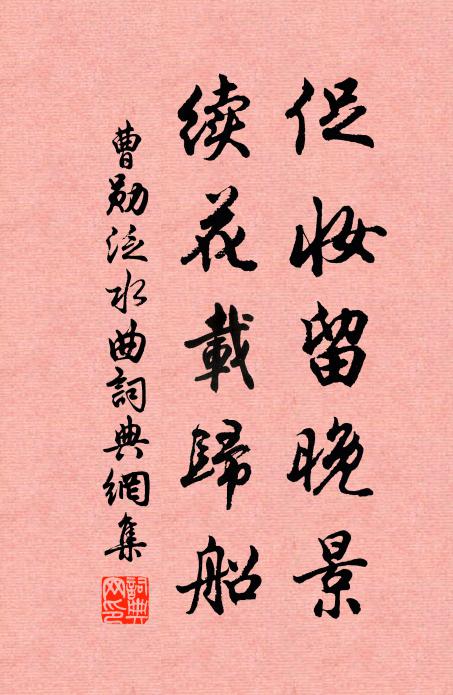 促妆留晚景
续花載歸船
曹勋泛水曲詞典網集
詞典网印